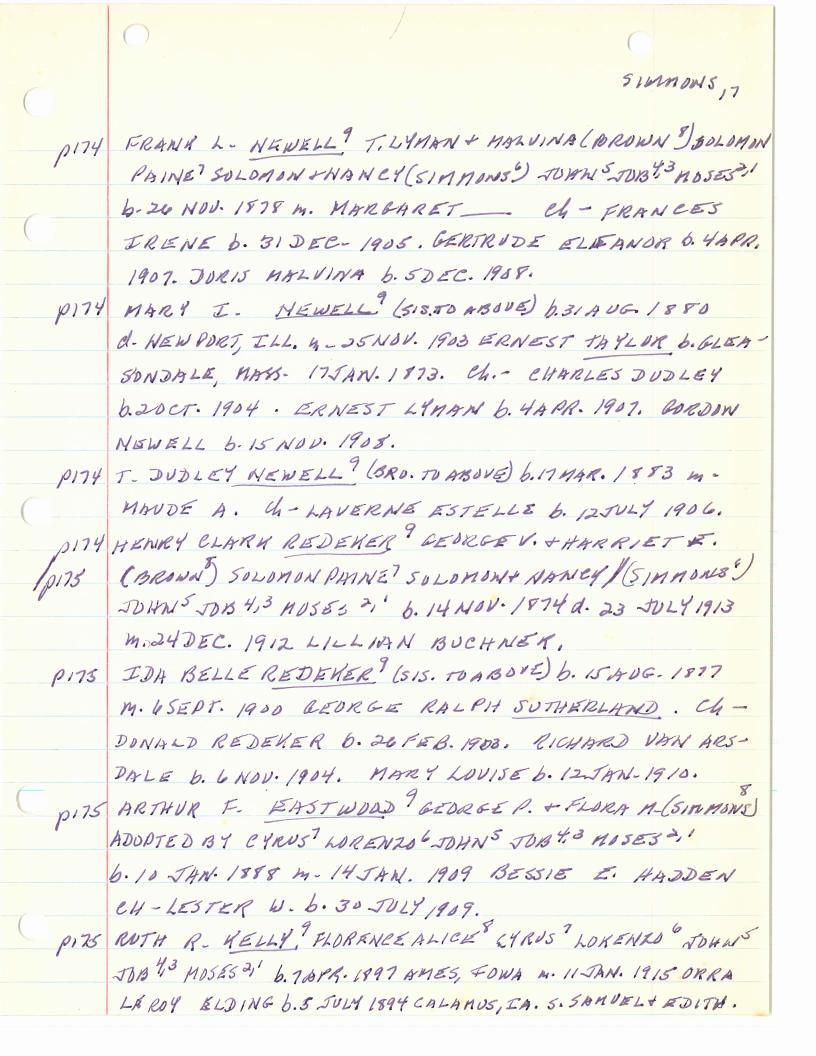 SIMMONS, 17
p174 FRANK L. NEWELL⁹ T. LYMAN + MALVINA (BROWN⁸) SOLOMON
PAINE⁷ SOLOMON + NANCY (SIMMONS⁶) JOHN⁵ JOB⁴,³ MOSES²,¹
b. 26 NOV. 1878 m. MARGARET ___ Ch - FRANCES
IRENE b. 31 DEC- 1905. GERTRUDE ELEANOR b. 4 APR.
1907. DORIS MALVINA b. 5 DEC. 1908.
p174 MARY I. NEWELL⁹ (SIS. TO ABOVE) b. 31 AUG. 1880
d. NEWPORT, ILL. m - 25 NOV. 1903 ERNEST TAYLOR b. GLEA-
SONDALE, MASS- 17 JAN. 1873. Ch. - CHARLES DUDLEY
b. 2 OCT. 1904. ERNEST LYMAN b. 4 APR. 1907. GORDON
NEWELL b. 15 NOV. 1908.
p174 T. DUDLEY NEWELL⁹ (BRO. TO ABOVE) b. 17 MAR. 1883 m-
MAUDE A. Ch - LAVERNE ESTELLE b. 12 JULY 1906.
p174 HENRY CLARK REDEKER⁹ GEORGE V. + HARRIET E.
/p175 (BROWN⁸) SOLOMON PAINE⁷ SOLOMON + NANCY /(SIMMONS⁶)
JOHN⁵ JOB⁴,³ MOSES²,¹ b. 14 NOV. 1874 d. 23 JULY 1913
m. 24 DEC. 1912 LILLIAN BUCHNER.
p175 IDA BELLE REDEKER⁹ (SIS. TO ABOVE) b. 15 AUG. 1877
m. 6 SEPT. 1900 GEORGE RALPH SUTHERLAND. Ch -
DONALD REDEKER b. 26 FEB. 1903. RICHARD VAN ARS-
DALE b. 6 NOV. 1904. MARY LOUISE b. 12 JAN- 1910.
p175 ARTHUR F. EASTWOOD⁹ GEORGE P. + FLORA M- (SIMMONS⁸)
ADOPTED BY CYRUS⁷ LORENZO⁶ JOHN⁵ JOB⁴,³ MOSES²,¹
b. 10 JAN. 1888 m- 14 JAN. 1909 BESSIE E. HADDEN
CH - LESTER W. b. 30 JULY 1909.
p175 RUTH R. KELLY⁹ FLORENCE ALICE⁸ CYRUS⁷ LORENZO⁶ JOHN⁵
JOB⁴,³ MOSES²,¹ b. 7 APR. 1897 AMES, IOWA m. 11 JAN. 1915 ORRA
LE ROY ELDING b. 5 JULY 1894 CALAMUS, IA. S. SAMUEL + EDITH.